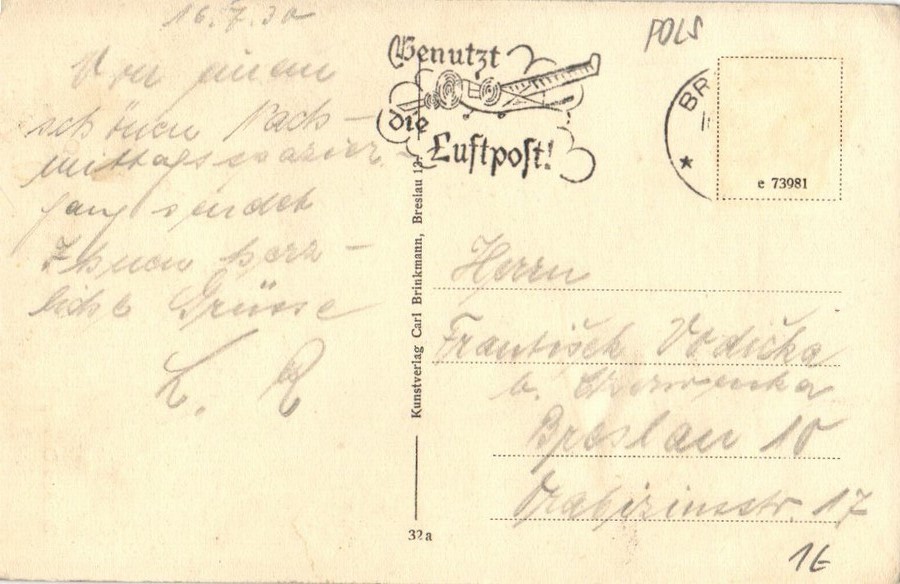 16.7.30
Von einem
schönen Nach-
mittagsspazier-
gang sendet
Ihnen herz-
liche Grüsse
L. R
Benutzt
die
Luftpost!
POLS
BR
*
e 73981
Kunstverlag Carl Brinkmann, Breslau 13
32a
Herrn
František Vodička
b.
Breslau 10
17
1€